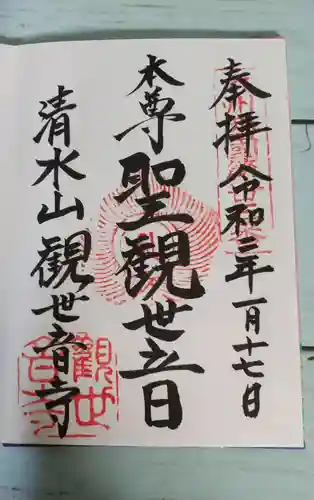 奉拝 令和二年一月十七日
本尊 聖観世音
清水山 観世音寺
観世
音寺